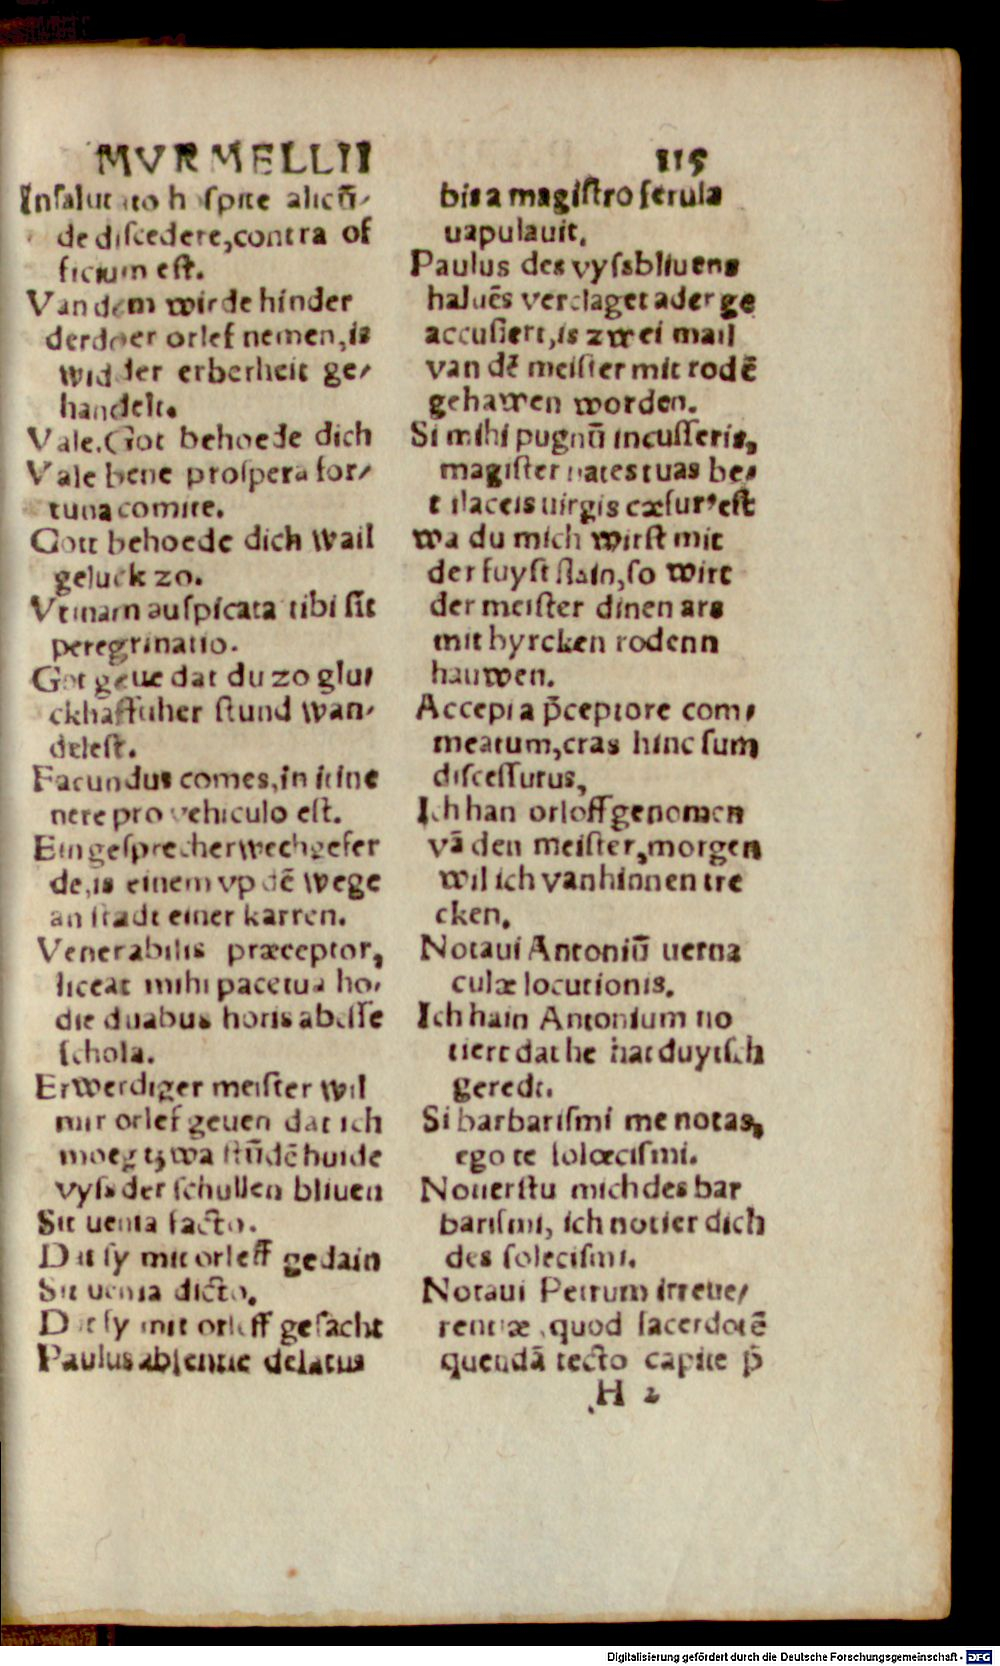 MVRMELLII 115
Insalutato hospite alicũ-
de discedere, contra of
ficium est.
Van dem wirde hinder
derdoer orlef nemen, is
widder erberheit ge/
handelt.
Vale. Got behoede dich
Vale bene prospera for/
tuna comite.
Gott behoede dich wail
geluck zo.
Vtinam auspicata tibi sit
peregrinatio.
Got geue dat du zo glu/
ckhafftiher stund wan-
delest.
Facundus comes, in itine
nere pro vehiculo est.
Ein gesprecher wechgefer
de, is einem vp dē wege
an stadt einer karren.
Venerabilis præceptor,
liceat mihi pace tua ho-
die duabus horis abesse
schola.
Erwerdiger meister wil
mir orlef geuen dat ich
moeg tzwa stūdē huide
vyss der schullen bliuen
Sit uenia facto.
Dat sy mit orleff gedain
Sit uenia dicto.
Dat sy mit orleff gesacht
Paulus absentie delatus
bis a magistro ferula
uapulauit.
Paulus des vyssbliuens
haluēs verclaget ader ge
accusiert, is zwei mail
van dē meister mit rodē
gehawen worden.
Si mihi pugnū incusseris,
magister nates tuas be-
tulaceis uirgis cæsur⁹est
wa du mich wirst mit
der fuyst slain, so wirt
der meister dinen ars
mit byrcken rodenn
hauwen.
Accepi a p̄ceptore com/
meatum, cras hinc sum
discessurus,
Ich han orloff genomen
vā den meister, morgen
wil ich vanhinnen tre
cken.
Notaui Antoniū uerna
culæ locutionis.
Ich hain Antonium no
tiert dat he hat duytsch
geredt.
Si barbarismi me notas,
ego te solœcismi.
Notierstu mich des bar
barismi, ich notier dich
des solecismi.
Notaui Petrum irreue/
rentiæ, quod sacerdotē
quendā tecto capite p̄
H 2
Digitalisierung gefördert durch die Deutsche Forschungsgemeinschaft - DFG